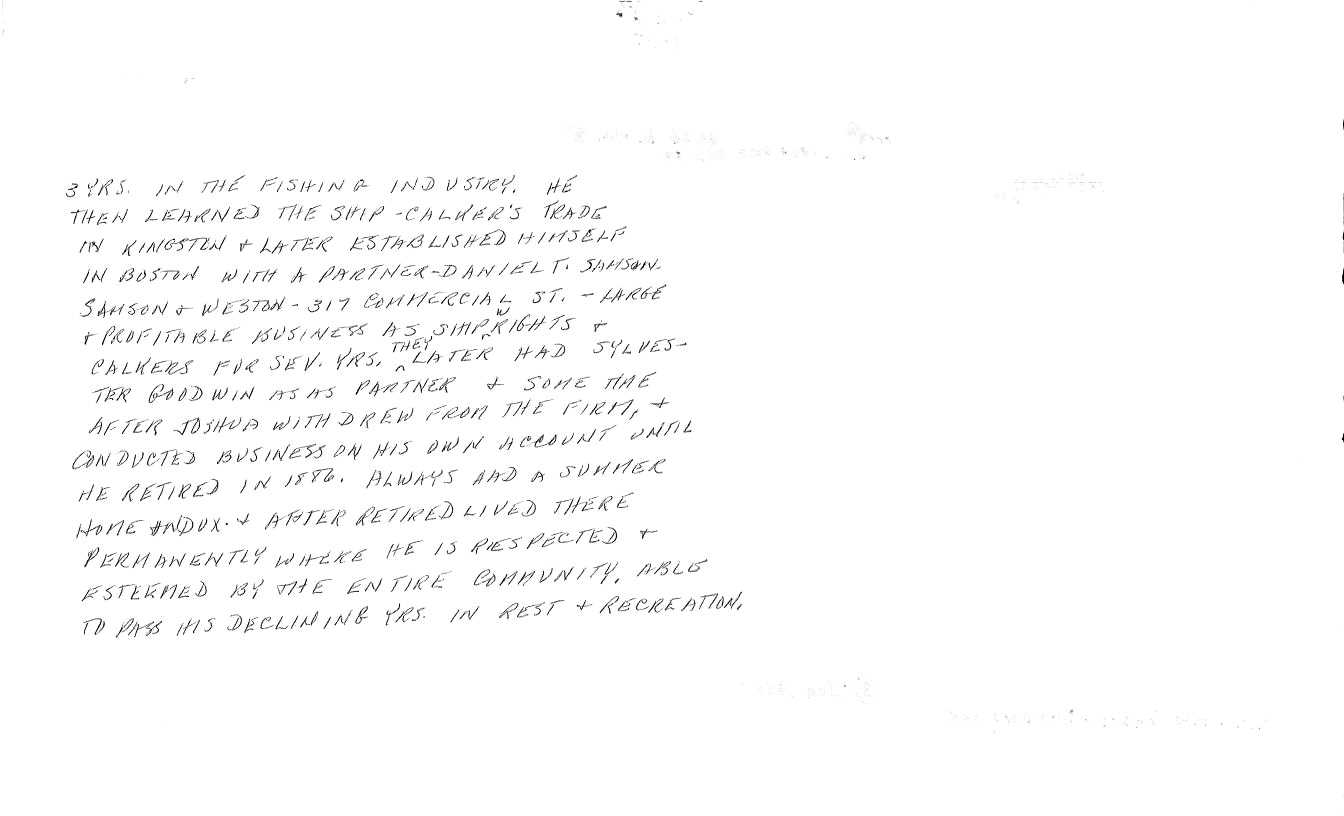 3 YRS. IN THE FISHING INDUSTRY. HE
THEN LEARNED THE SHIP-CALKER'S TRADE
IN KINGSTON & LATER ESTABLISHED HIMSELF
IN BOSTON WITH A PARTNER-DANIEL T. SAMSON.
SAMSON & WESTON - 317 COMMERCIAL ST. - LARGE
& PROFITABLE BUSINESS AS SHIPWRIGHTS &
CALKERS FOR SEV. YRS. THEY LATER HAD SYLVES-
TER GOODWIN AS AS PARTNER & SOME TIME
AFTER JOSHUA WITHDREW FROM THE FIRM, &
CONDUCTED BUSINESS ON HIS OWN ACCOUNT UNTIL
HE RETIRED IN 1886. ALWAYS HAD A SUMMER
HOME IN DUX. & AFTER RETIRED LIVED THERE
PERMANENTLY WHERE HE IS RESPECTED &
ESTEEMED BY THE ENTIRE COMMUNITY. ABLE
TO PASS HIS DECLINING YRS. IN REST & RECREATION.